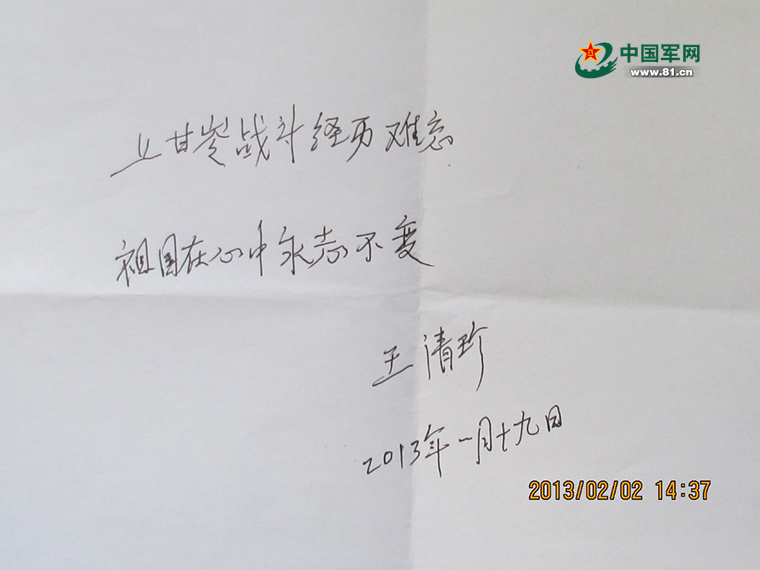 中国军网
www.81.cn
上甘岭战斗经历难忘
祖国在心中永志不变
王清珍
2013年一月十九日
2013/02/02 14:37